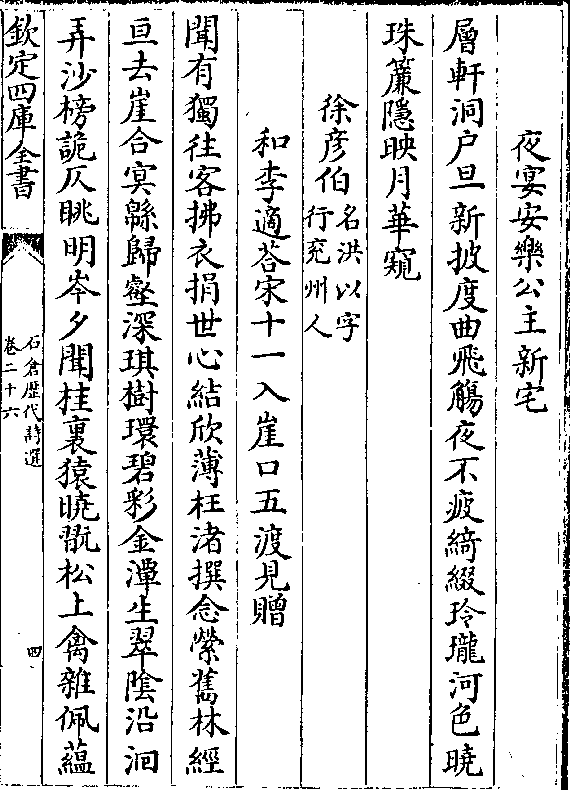 夜宴安樂公主新宅
層軒洞户旦新披度曲飛觴夜不疲綺綴玲瓏河色曉
珠簾隱映月華窺
徐彦伯名洪以字
行兖州人
和李適荅宋十一入崖口五渡見贈
聞有獨往客拂衣捐世心結欣薄枉渚撰念縈舊林經
亘去崖合㝠緜歸壑深琪樹環碧彩金潭生翠陰沿洄
弄沙榜詭仄眺明岑夕聞桂裏猿曉翫松上禽雜佩藴
欽定四庫全書
石倉歴代詩選
卷二十六
四